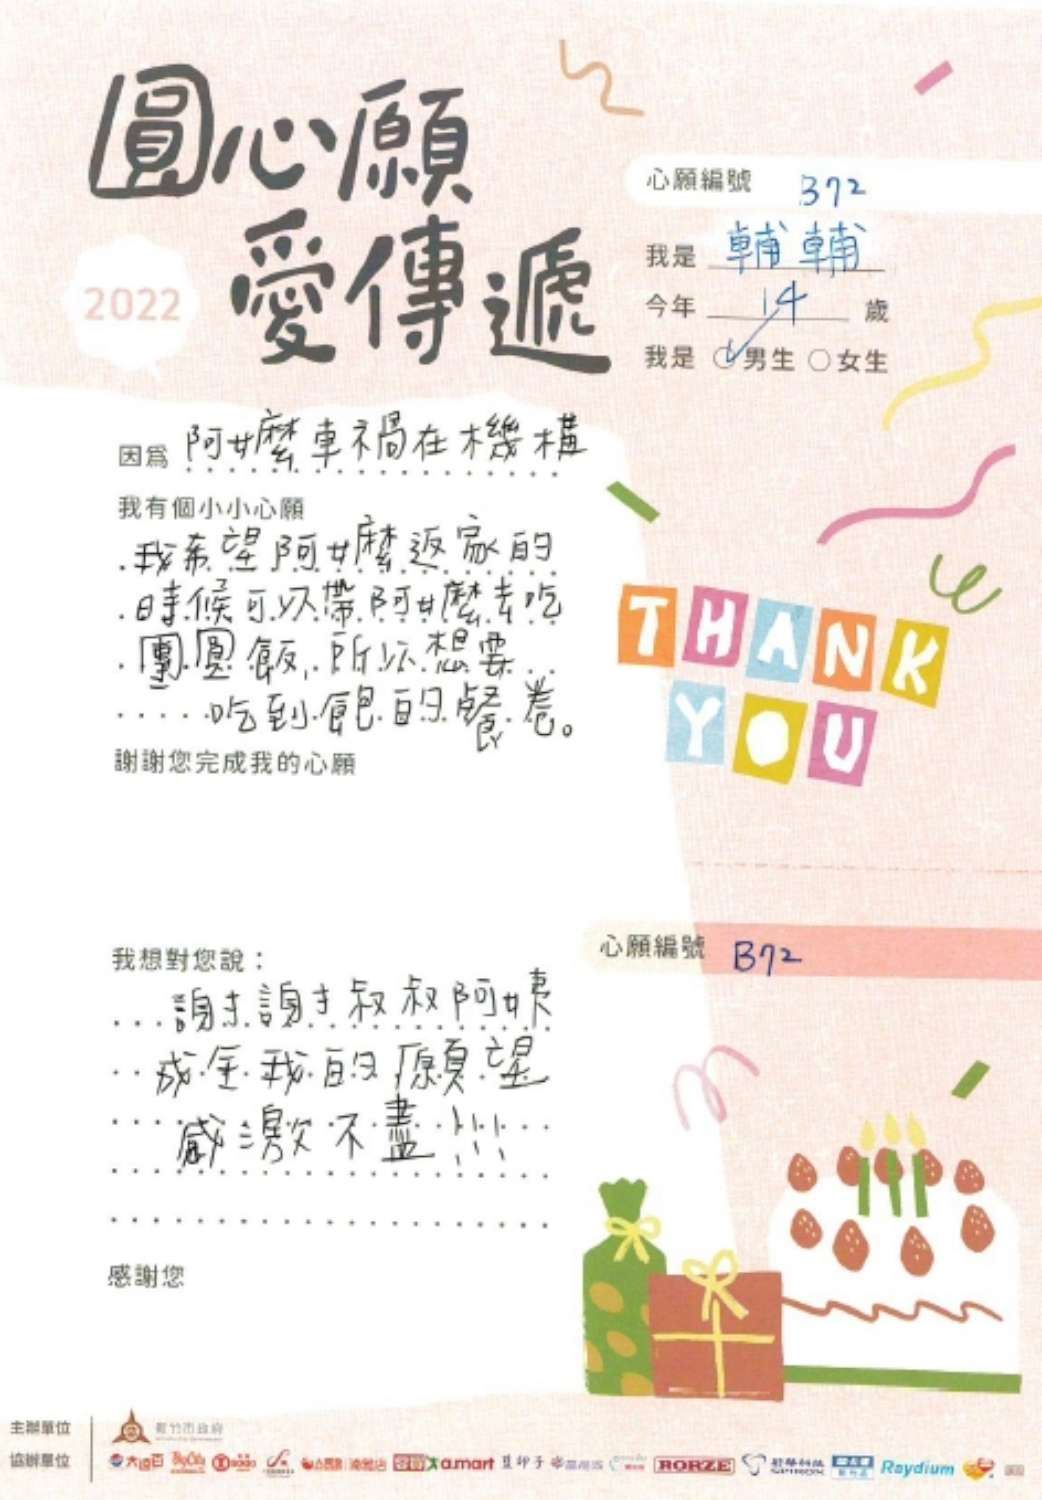 圓心願
愛傳遞
2022
心願編號 B72
我是 輔輔
今年 14 歲
我是 ○男生 ○女生
因為 阿嬤車禍在機構
我有個小小心願
我希望阿嬤返家的
時候可以帶阿嬤去吃
團圓飯,所以想要
吃到飽的餐卷。
謝謝您完成我的心願
THANK
YOU
心願編號 B72
我想對您說:
謝謝叔叔阿姨
成全我的願望
感激不盡!!!
感謝您
主辦單位 新竹市政府
協辦單位 大遠百 Big City SOGO a.mart RORZE SPIROX Raydium